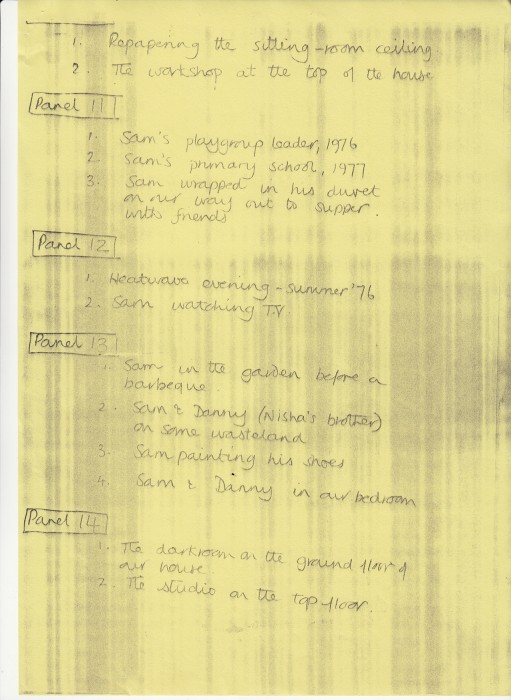 1. Repapering the sitting-room ceiling.
2. The workshop at the top of the house
Panel 11
1. Sam's playgroup leader, 1976
2. Sam's primary school, 1977
3. Sam wrapped in his duvet
on our way out to supper.
with friends
Panel 12
1. Heatwave evening - summer '76
2. Sam watching T.V
Panel 13
1. Sam in the garden before a
barbeque.
2. Sam & Danny (Nisha's brother)
on some wasteland
3. Sam painting his shoes
4. Sam & Danny in our bedroom
Panel 14
1. The darkroom on the ground floor of
our house
2. The studio on the top floor.